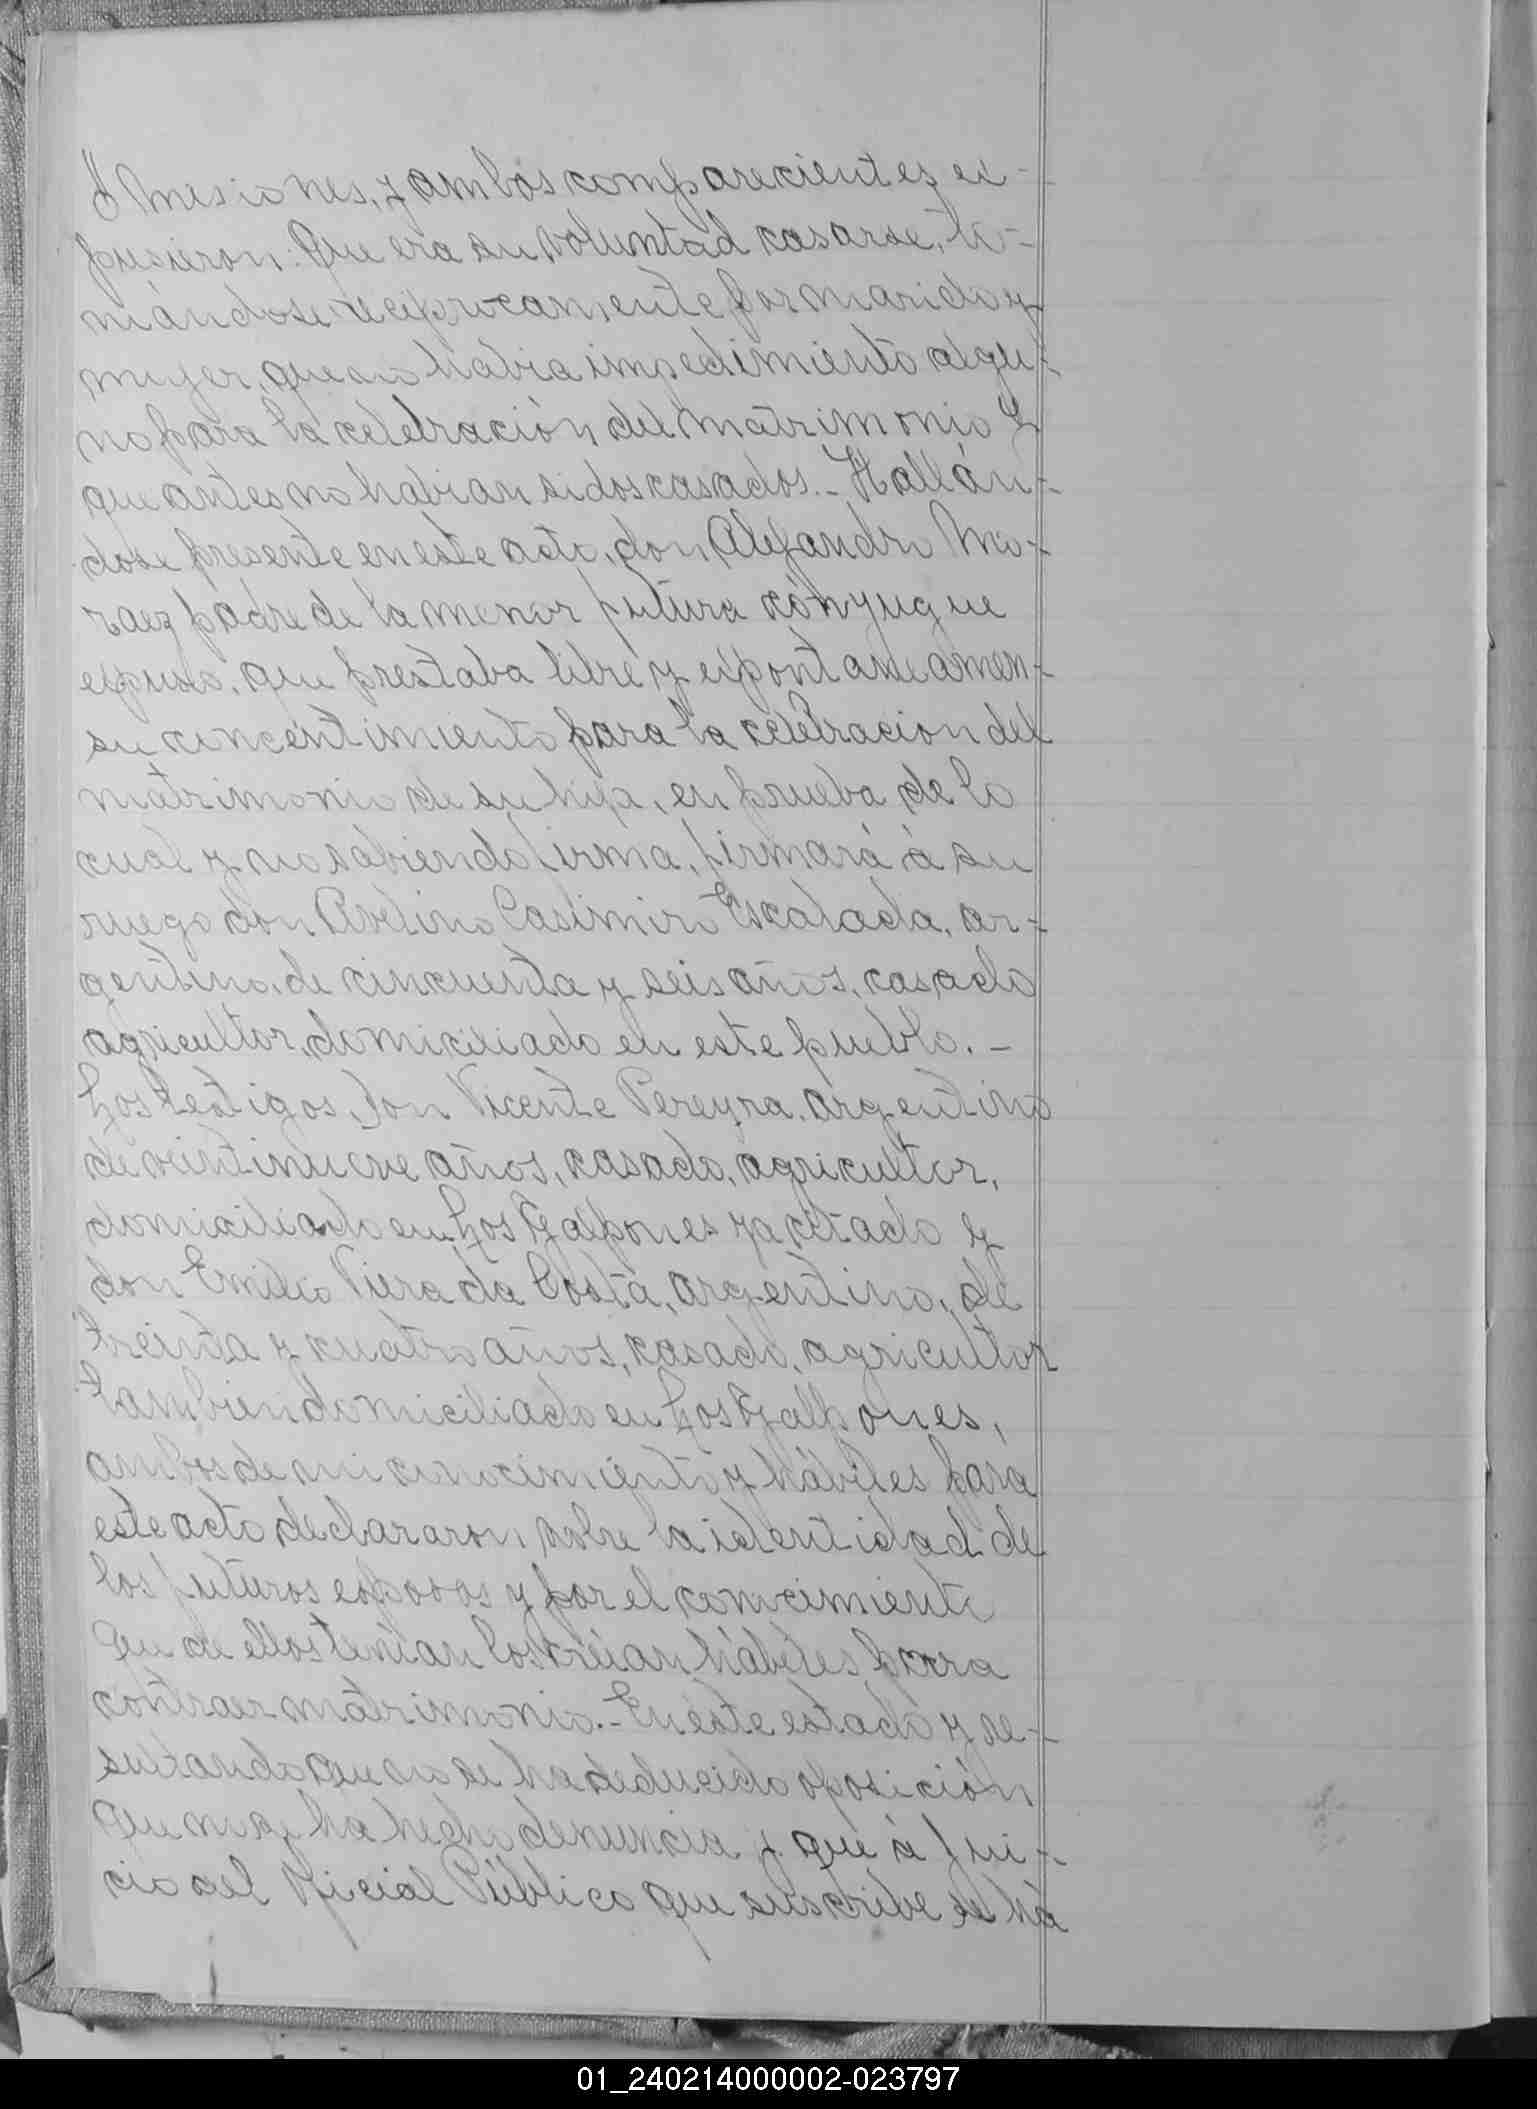 Misiones, y ambos comparecientes ex-
pusieron: Que era su voluntad casarse, to-
mándose reciprocamente por marido y
mujer, que no habia impedimiento algu-
no para la celebración del matrimonio y
que antes no habian sidos casados.- Hallán-
dose presente en este acto, don Alejandro Mo-
raez padre de la menor futura cónyugue
expuso, que prestaba libre y expontaneamen-
su concentimiento para la celebracion del
matrimonio de su hija, en prueba de lo
cual y no sabiendo firma, firmará á su
ruego don Avelino Casimiro Escalada, ar-
gentino, de cincuenta y seis años, casado
agricultor, domiciliado en este pueblo. -
Los testigos, don Vicente Pereyra, argentino
de veintinueve años, casado, agricultor,
domiciliado en Los Galpones ya citado y
don Emilio Viera da Costa, argentino, de
treinta y cuatro años, casado, agricultor
tambien domiciliado en Los Galpones,
ambos de mi conocimiento y hábiles para
este acto declararon, sobre la identidad de
los futuros esposos y por el conocimiento
que de ellos tenían los créian hábiles para
contraer matrimonio.- En este estado y re-
sultando que no se ha deducido oposición
que ni se ha hecho denuncia y que á jui-
cio del Oficial Público que suscribe se há
01_240214000002-023797